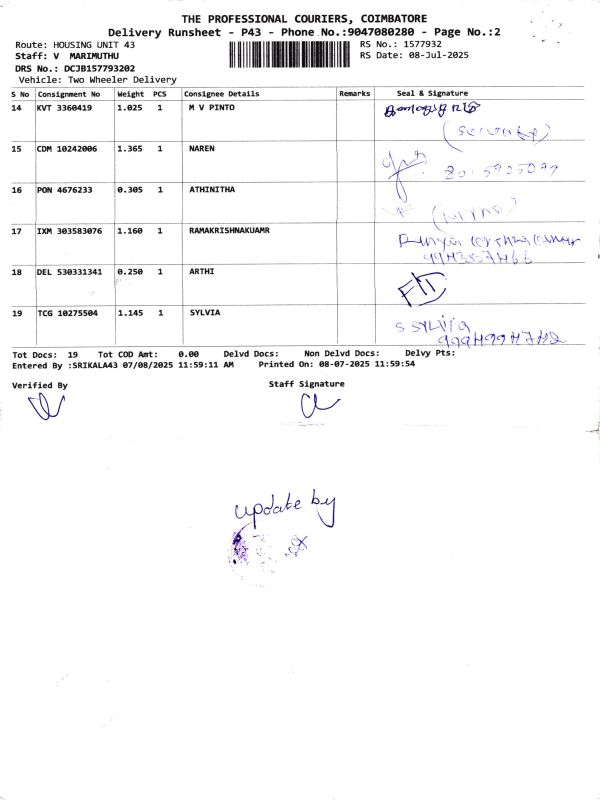 THE PROFESSIONAL COURIERS, COIMBATORE
Delivery Runsheet - P43 - Phone No.:9047080280 - Page No.:2
Route: HOUSING UNIT 43
RS No.: 1577932
Staff: V MARIMUTHU
RS Date: 08-Jul-2025
DRS No.: DCJB157793202
Vehicle: Two Wheeler Delivery
S No Consignment No Weight PCS Consignee Details Remarks Seal & Signature
14 KVT 3360419 1.025 1 M V PINTO
(Security)
15 CDM 10242006 1.365 1 NAREN
16 PON 4676233 0.305 1 ATHINITHA
17 IXM 303583076 1.160 1 RAMAKRISHNAKUAMR
18 DEL 530331341 0.250 1 ARTHI
19 TCG 10275504 1.145 1 SYLVIA
S SYLVIA
Tot Docs: 19 Tot COD Amt: 0.00 Delvd Docs: Non Delvd Docs: Delvy Pts:
Entered By :SRIKALA43 07/08/2025 11:59:11 AM Printed On: 08-07-2025 11:59:54
Verified By Staff Signature
update by